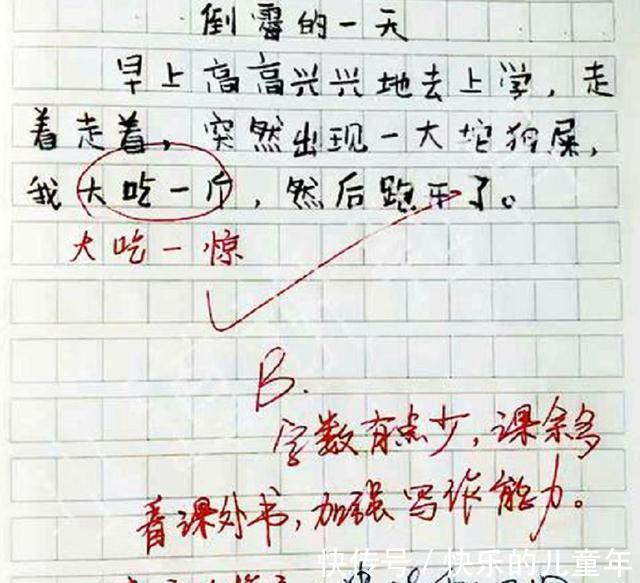 倒霉的一天
早上高高兴兴地去上学,走
着走着,突然出现一大坨狗屎,
我大吃一斤,然后跑开了。
大吃一惊
B.
字数有点少,课余多
看课外书,加强写作能力。
快传号/快乐的儿童年